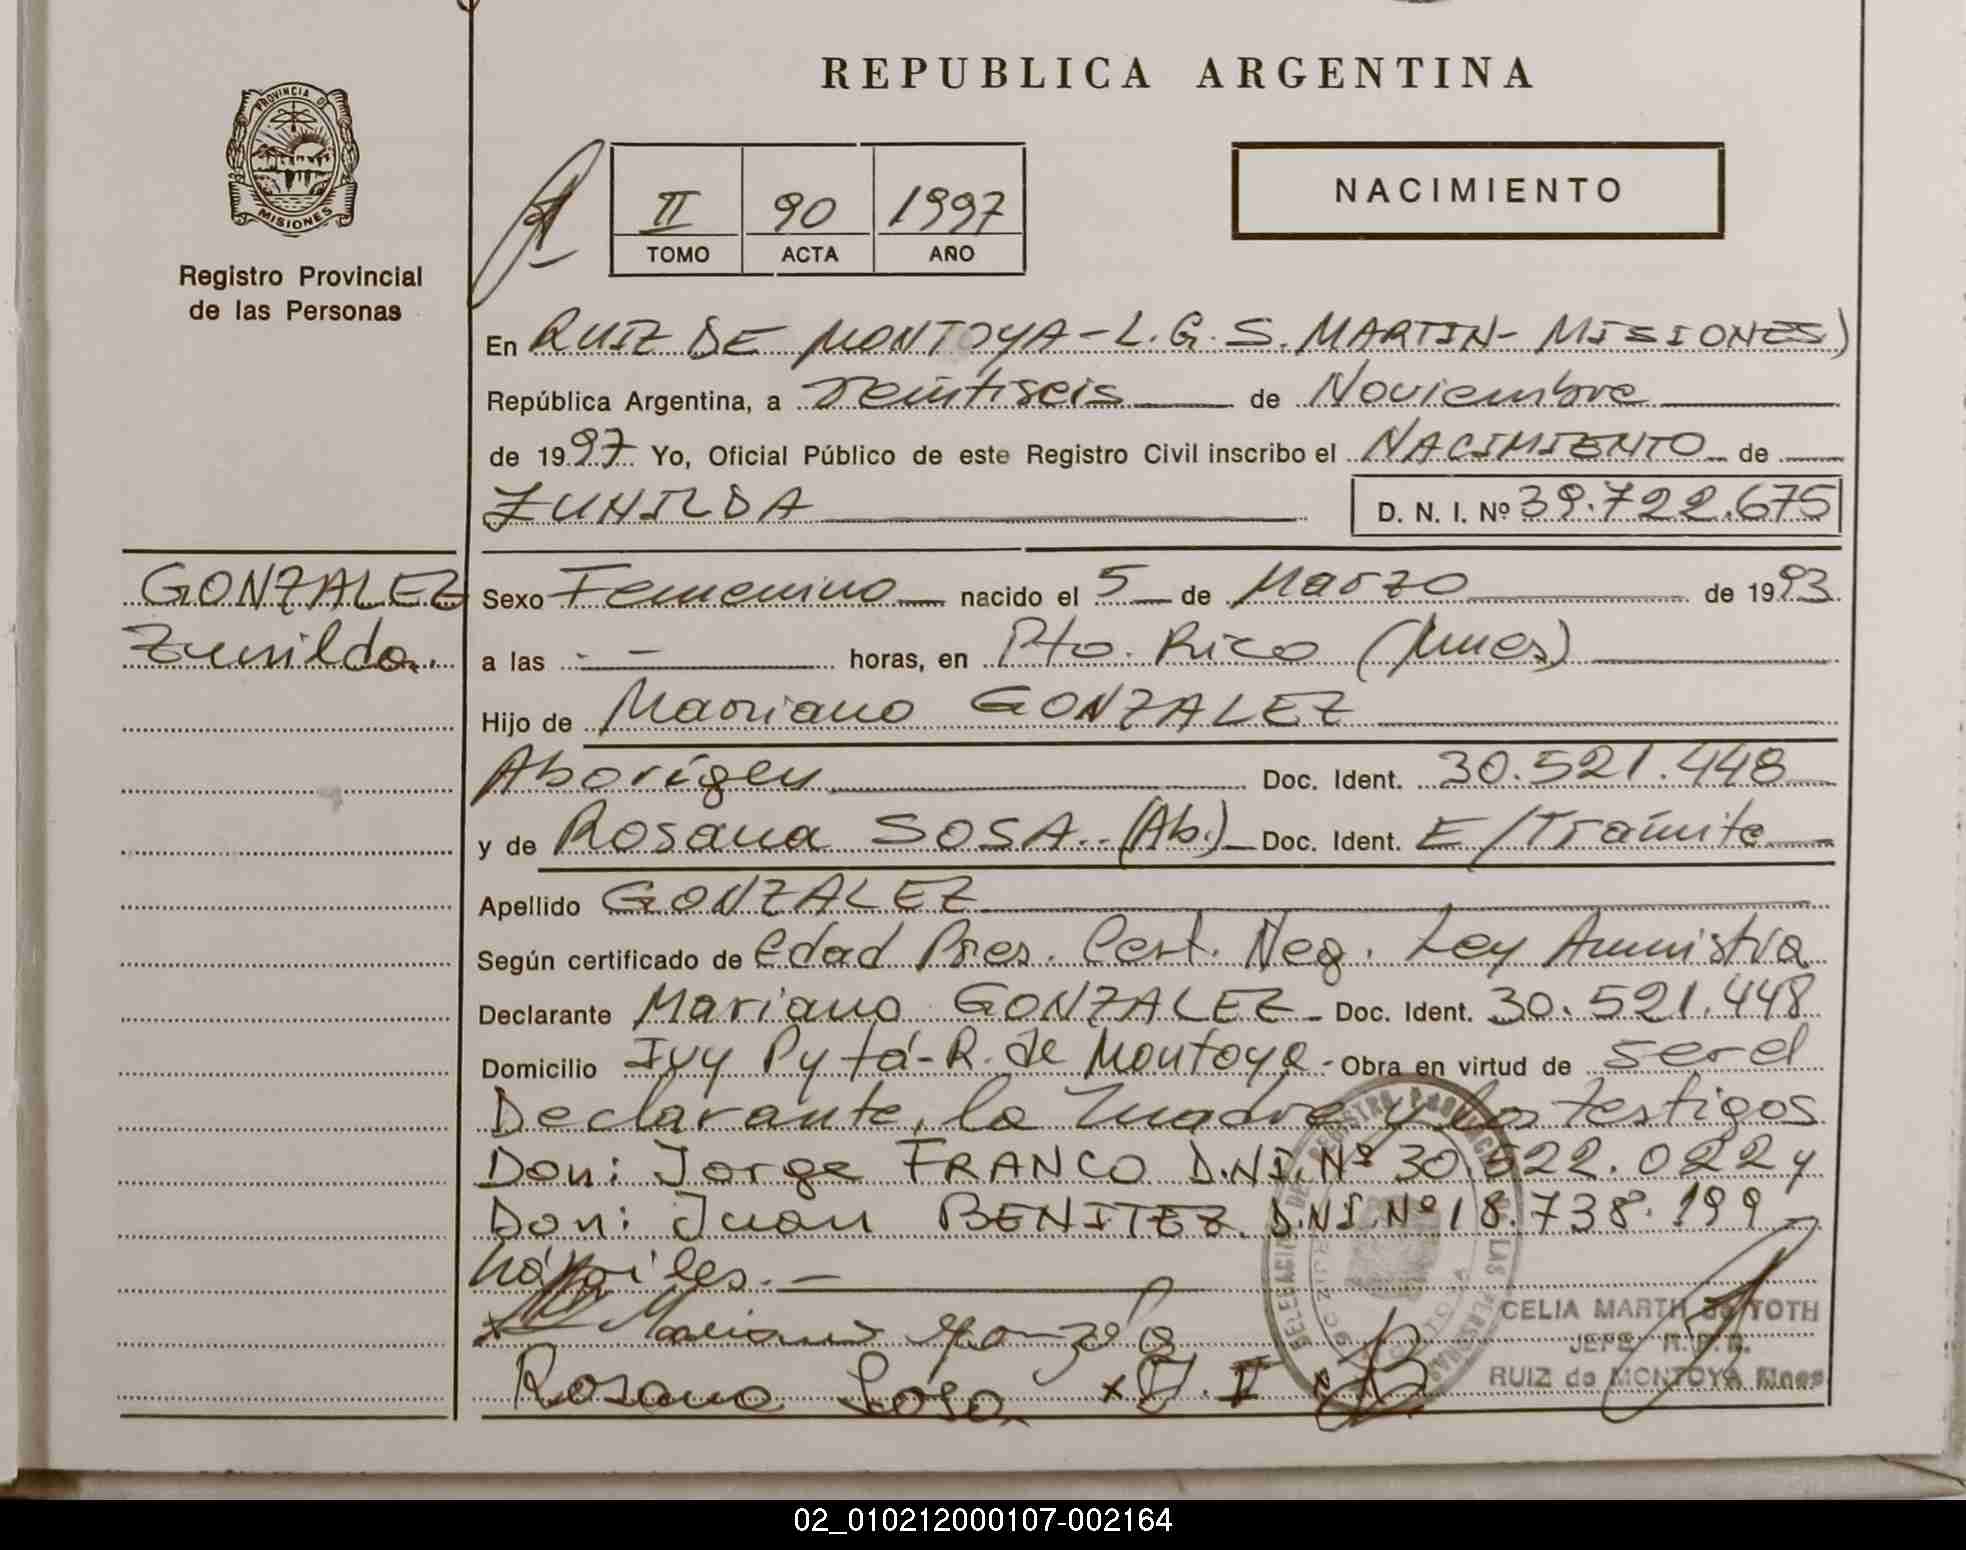 REPUBLICA ARGENTINA
PROVINCIA DE
MISIONES
Registro Provincial
de las Personas
II 90 1997
TOMO ACTA AÑO
NACIMIENTO
En RUIZ DE MONTOYA-L.G.S.MARTIN-MISIONES)
República Argentina, a veintiseis de Noviembre
de 1997 Yo, Oficial Público de este Registro Civil inscribo el NACIMIENTO de
ZUNILDA D. N. I. Nº 39.722.675
GONZALEZ
Zunilda.
Sexo Femenino nacido el 5 de Marzo de 1993
a las - - horas, en Pto. Rico (Mnes)
Hijo de Mariano GONZALEZ
Aborígen Doc. Ident. 30.521.448
y de Rosana SOSA. (Ab.) Doc. Ident. E/Trámite
Apellido GONZALEZ
Según certificado de Edad Pres. Cert. Neg. Ley Amnistía
Declarante Mariano GONZALEZ Doc. Ident. 30.521.448
Domicilio Ivy Pytá-R. de Montoya - Obra en virtud de ser el
Declarante, la madre y los testigos
Don: Jorge FRANCO D.NI.Nº 30.522.022 y
Don: Juan BENITEZ D.NI.Nº 18.738.199
hábiles.-
Mariano
Rosana Sosa
DELEGACION DEL REGISTRO PROVINCIAL DE LAS PERSONAS
CELIA MARTH de TOTH
JEFE R.P.P.
RUIZ de MONTOYA Mnes
02_010212000107-002164